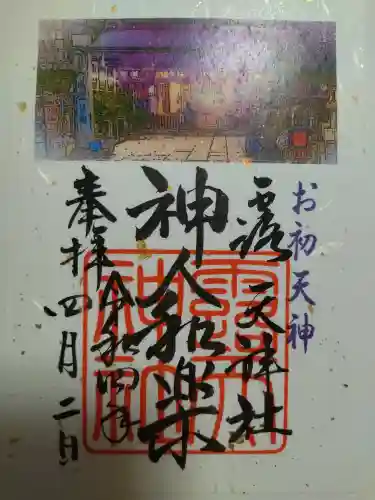 お初天神
露天神社
神人和楽
奉拝
令和四年
四月二日